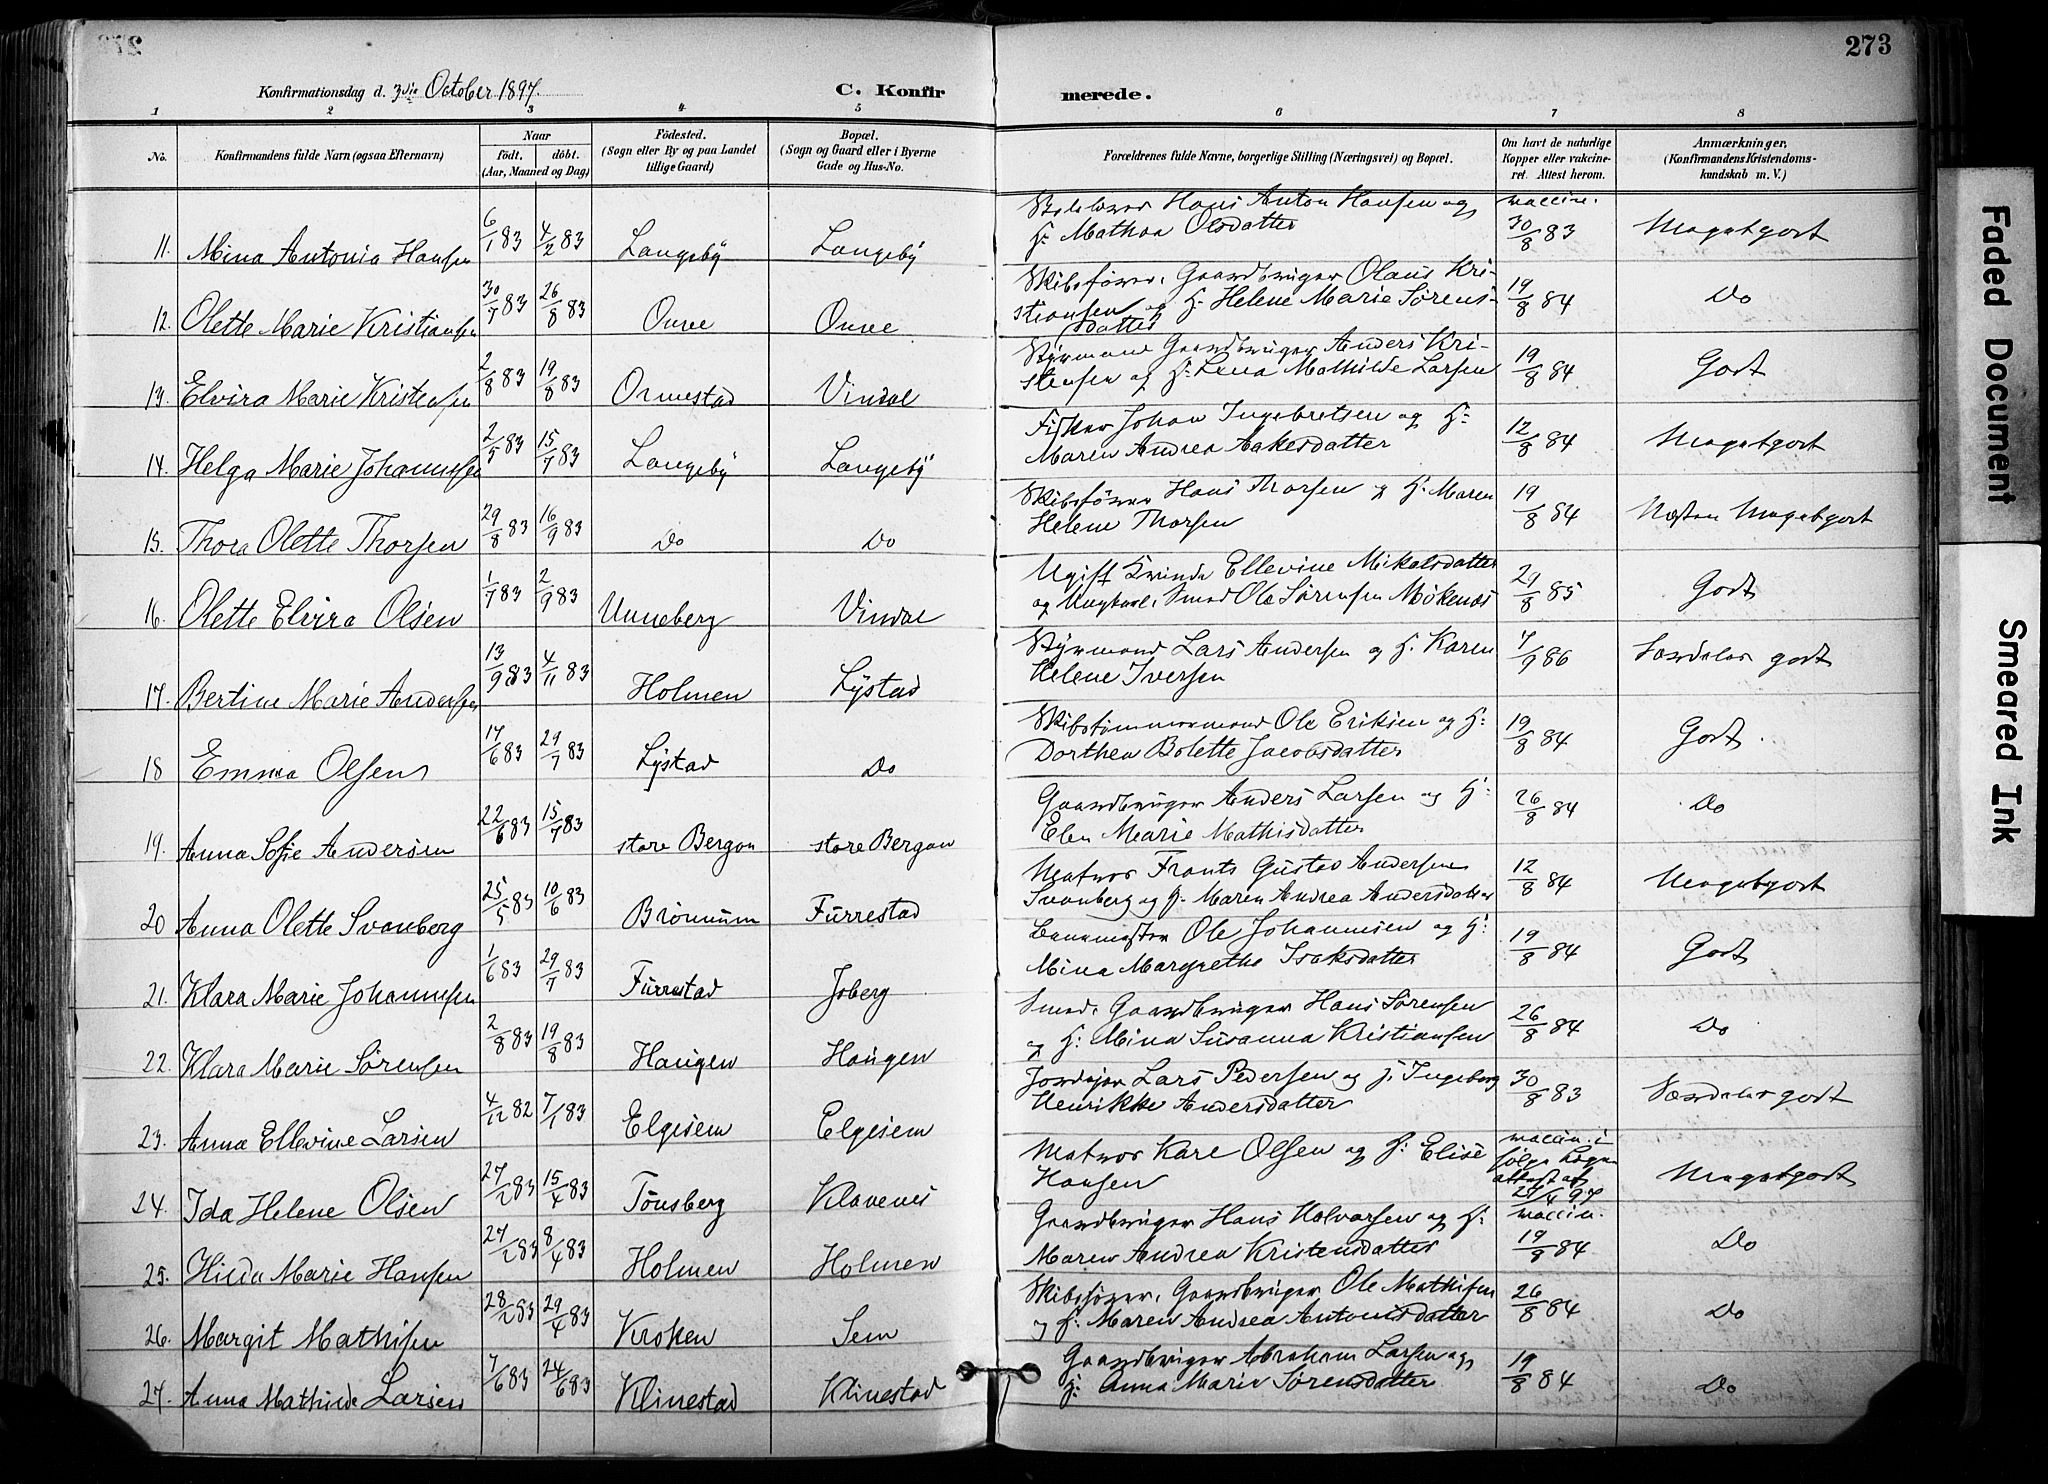 273
Konfirmationsdag d. 3die October 1897.
C. Konfir merede.
1 2 3 4 5 6 7 8
No. Konfirmandens fulde Navn (ogsaa Efternavn) Naar født, døbt. (Aar, Maaned og Dag) Fødested. (Sogn eller By og paa Landet tillige Gaard) Bopæl. (Sogn og Gaard eller i Byerne Gade og Hus-No. Forældrenes fulde Navne, borgerlige Stilling (Næringsvei) og Bopæl. Om havt de naturlige Kopper eller vakcineret. Attest herom. Anmærkninger, (Konfirmandens Kristendomskundskab m. V.)
11. Mina Antonia Hansen 6/1 83 4/2 83 Langeby Langeby Hans Anton Hansen og H: Mathea Olsdatter vaccin. 30/8 83 Megetgodt
12. Olette Marie Kristiansen 30/7 83 26/8 83 Orre Orre Skibsfører, Gaardbruger Olaus Kristiansen og H: Helene Marie Sørensdatter 19/8 84 Do
13. Elvira Marie Kristensen 2/8 83 19/8 83 Ormestad Vindal Styrmand Gaardbruger Anders Kristensen og H: Lena Mathilde Larsen 19/8 84 Godt
14. Helga Marie Johannesen 2/5 83 15/7 83 Langeby Langeby Fisker Johan Ingebretsen og H: Maren Andrea Aakesdatter 12/8 84 Megetgodt
15. Thora Olette Thorsen 29/8 83 16/9 83 Do Do Skibsfører Hans Thorsen og H: Maren Helene Thorsen 19/8 84 Næsten Megetgodt
16. Olette Elvira Olsen 1/7 83 2/9 83 Unneberg Vindal Ugift Kvinde Ellevine Mikalsdatter og Ungkarl, Smed Ole Sørensen Møkenes 29/8 85 Godt
17. Bertine Marie Andersen 13/9 83 4/11 83 Holmen Lystad Styrmand Lars Andersen og H. Karen Helene Iversen 7/9 86 Særdeles godt
18 Emma Olsen 17/6 83 29/7 83 Lystad Do Skibstømmermand Ole Eriksen og H: Dorthea Bolette Jacobsdatter 19/8 84 Godt.
19. Anna Sofie Andersen 22/6 83 15/7 83 store Bergan store Bergan Gaardbruger Anders Larsen og H: Elen Marie Mathisdatter 26/8 84 Do
20 Anna Olette Svanberg 25/5 83 10/6 83 Brönnum Furrestad Matros Frants Gustav Andersen Svanberg og H. Maren Andrea Andersdatter 12/8 84 Megetgodt
21. Klara Marie Johannesen 1/6 83 29/7 83 Furrestad Joberg Banemester Ole Johannesen og H: Mina Margrethe Isaksdatter 19/8 84 Godt
22. Klara Marie Sørensen 2/8 83 19/8 83 Haugen Haugen Smed, Gaardbruger Hans Sørensen og H: Mina Susanna Kristiansen 26/8 84 Do
23. Anna Ellevine Larsen 4/12 82 7/1 83 Elgesem Elgesem Jordejer Lars Pedersen og H. Ingeborg Henrikke Andersdatter 30/8 83 Særdeles godt
24. Ida Helene Olsen 27/2 83 15/4 83 Tönsberg Klavenes Matros Karl Olsen og H: Elise Hansen vaccin. i følge Læge attest af 27/4 97 Megetgodt
25. Hilda Marie Hansen 27/2 83 8/4 83 Holmen Holmen Gaardbruger Hans Halvorsen og H: Maren Andrea Kristensdatter vaccin. 19/9 84 Do
26. Margit Mathisen 28/2 83 29/4 83 Kroken Sem Skibsfører, Gaardbruger Ole Mathisen og H: Maren Andrea Antonisdatter 26/8 84 Do
27. Anna Mathilde Larsen 7/6 83 24/6 83 Klinestad Klinestad Gaardbruger Abraham Larsen og H: Anna Marie Sørensdatter 19/8 84 Do
Faded Document
Smeared Ink